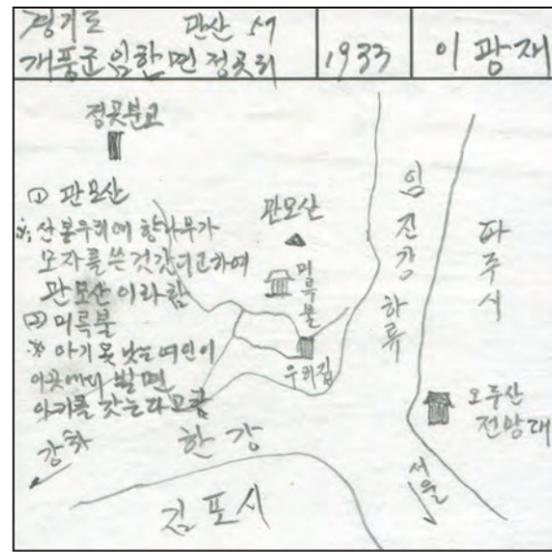 경기도 관산 57
개풍군 임한면 정곶리
1933
이광재
정곶분교
① 관모산
※ 산봉우리에 향나무가
모자를 쓴것같다고하여
관모산 이라함
② 미륵불
※ 아기 못 낳는 여인이
이곳에서 빌면
아기를 갖는다고함
관모산
미륵불
우리집
임진강 하류
파주시
오두산
전망대
서울
강화
한강
김포시